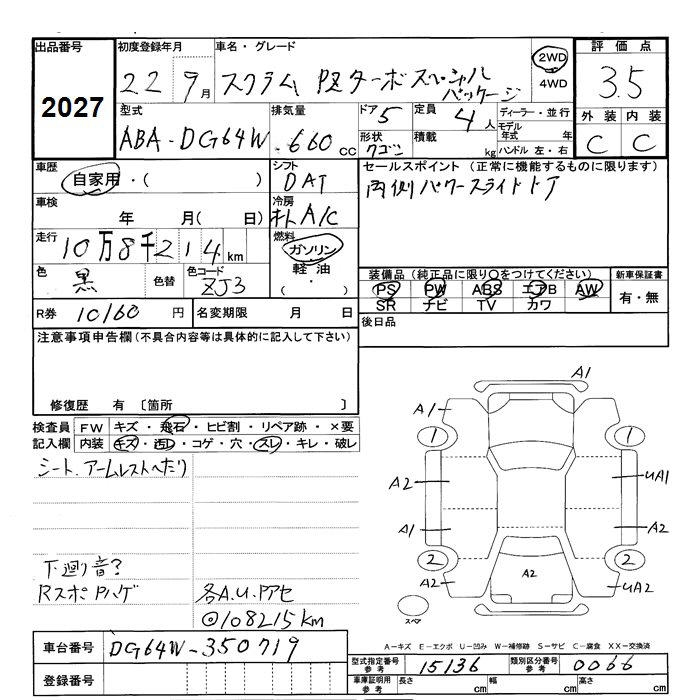 出品番号 初度登録年月 車名・グレード 2WD 評価点
2027 22 9月 スクラム PZターボスペシャルパッケージ 4WD 3.5
型式 排気量 ドア 5 定員 4人 ディーラー・並行 外装 内装
ABA-DG64W 660cc 形状 ワゴン 積載 kg モデル年式 年 C C
ハンドル 左・右
車歴 シフト セールスポイント(正常に機能するものに限ります)
自家用・( ) DAT 両側パワースライドドア
車検 年 月( 日) 冷房 A/C
走行 10万8千214km 燃料 ガソリン
色 黒 色替 色コード ZJ3 軽油
・( )
装備品(純正品に限り○をつけてください) 新車保証書
PS PW ABS エアB AW 有・無
SR ナビ TV カワ
R券 10160円 名変期限 月 日 後日品
注意事項申告欄(不具合内容等は具体的に記入して下さい)
修復歴 有〔箇所 〕
検査員 FW キズ・飛石・ヒビ割・リペア跡・×要
記入欄 内装 キズ・汚レ・コゲ・穴・スレ・キレ・破レ
シート、アームレストへたり
下廻り音?
Rスポ Pハゲ 各A.U.Pアセ
◎108215km
A1
A1
1 1
A2 UA1
A1 A2
2 2
A2 A2 UA2
スペア
A-キズ E-エクボ U-凹み W-補修跡 S-サビ C-腐食 XX-交換済
車台番号 DG64W-350719
登録番号
型式指定番号 参考 15136 類別区分番号 参考 0066
車庫証明用 参考 長さ cm 幅 cm 高さ cm